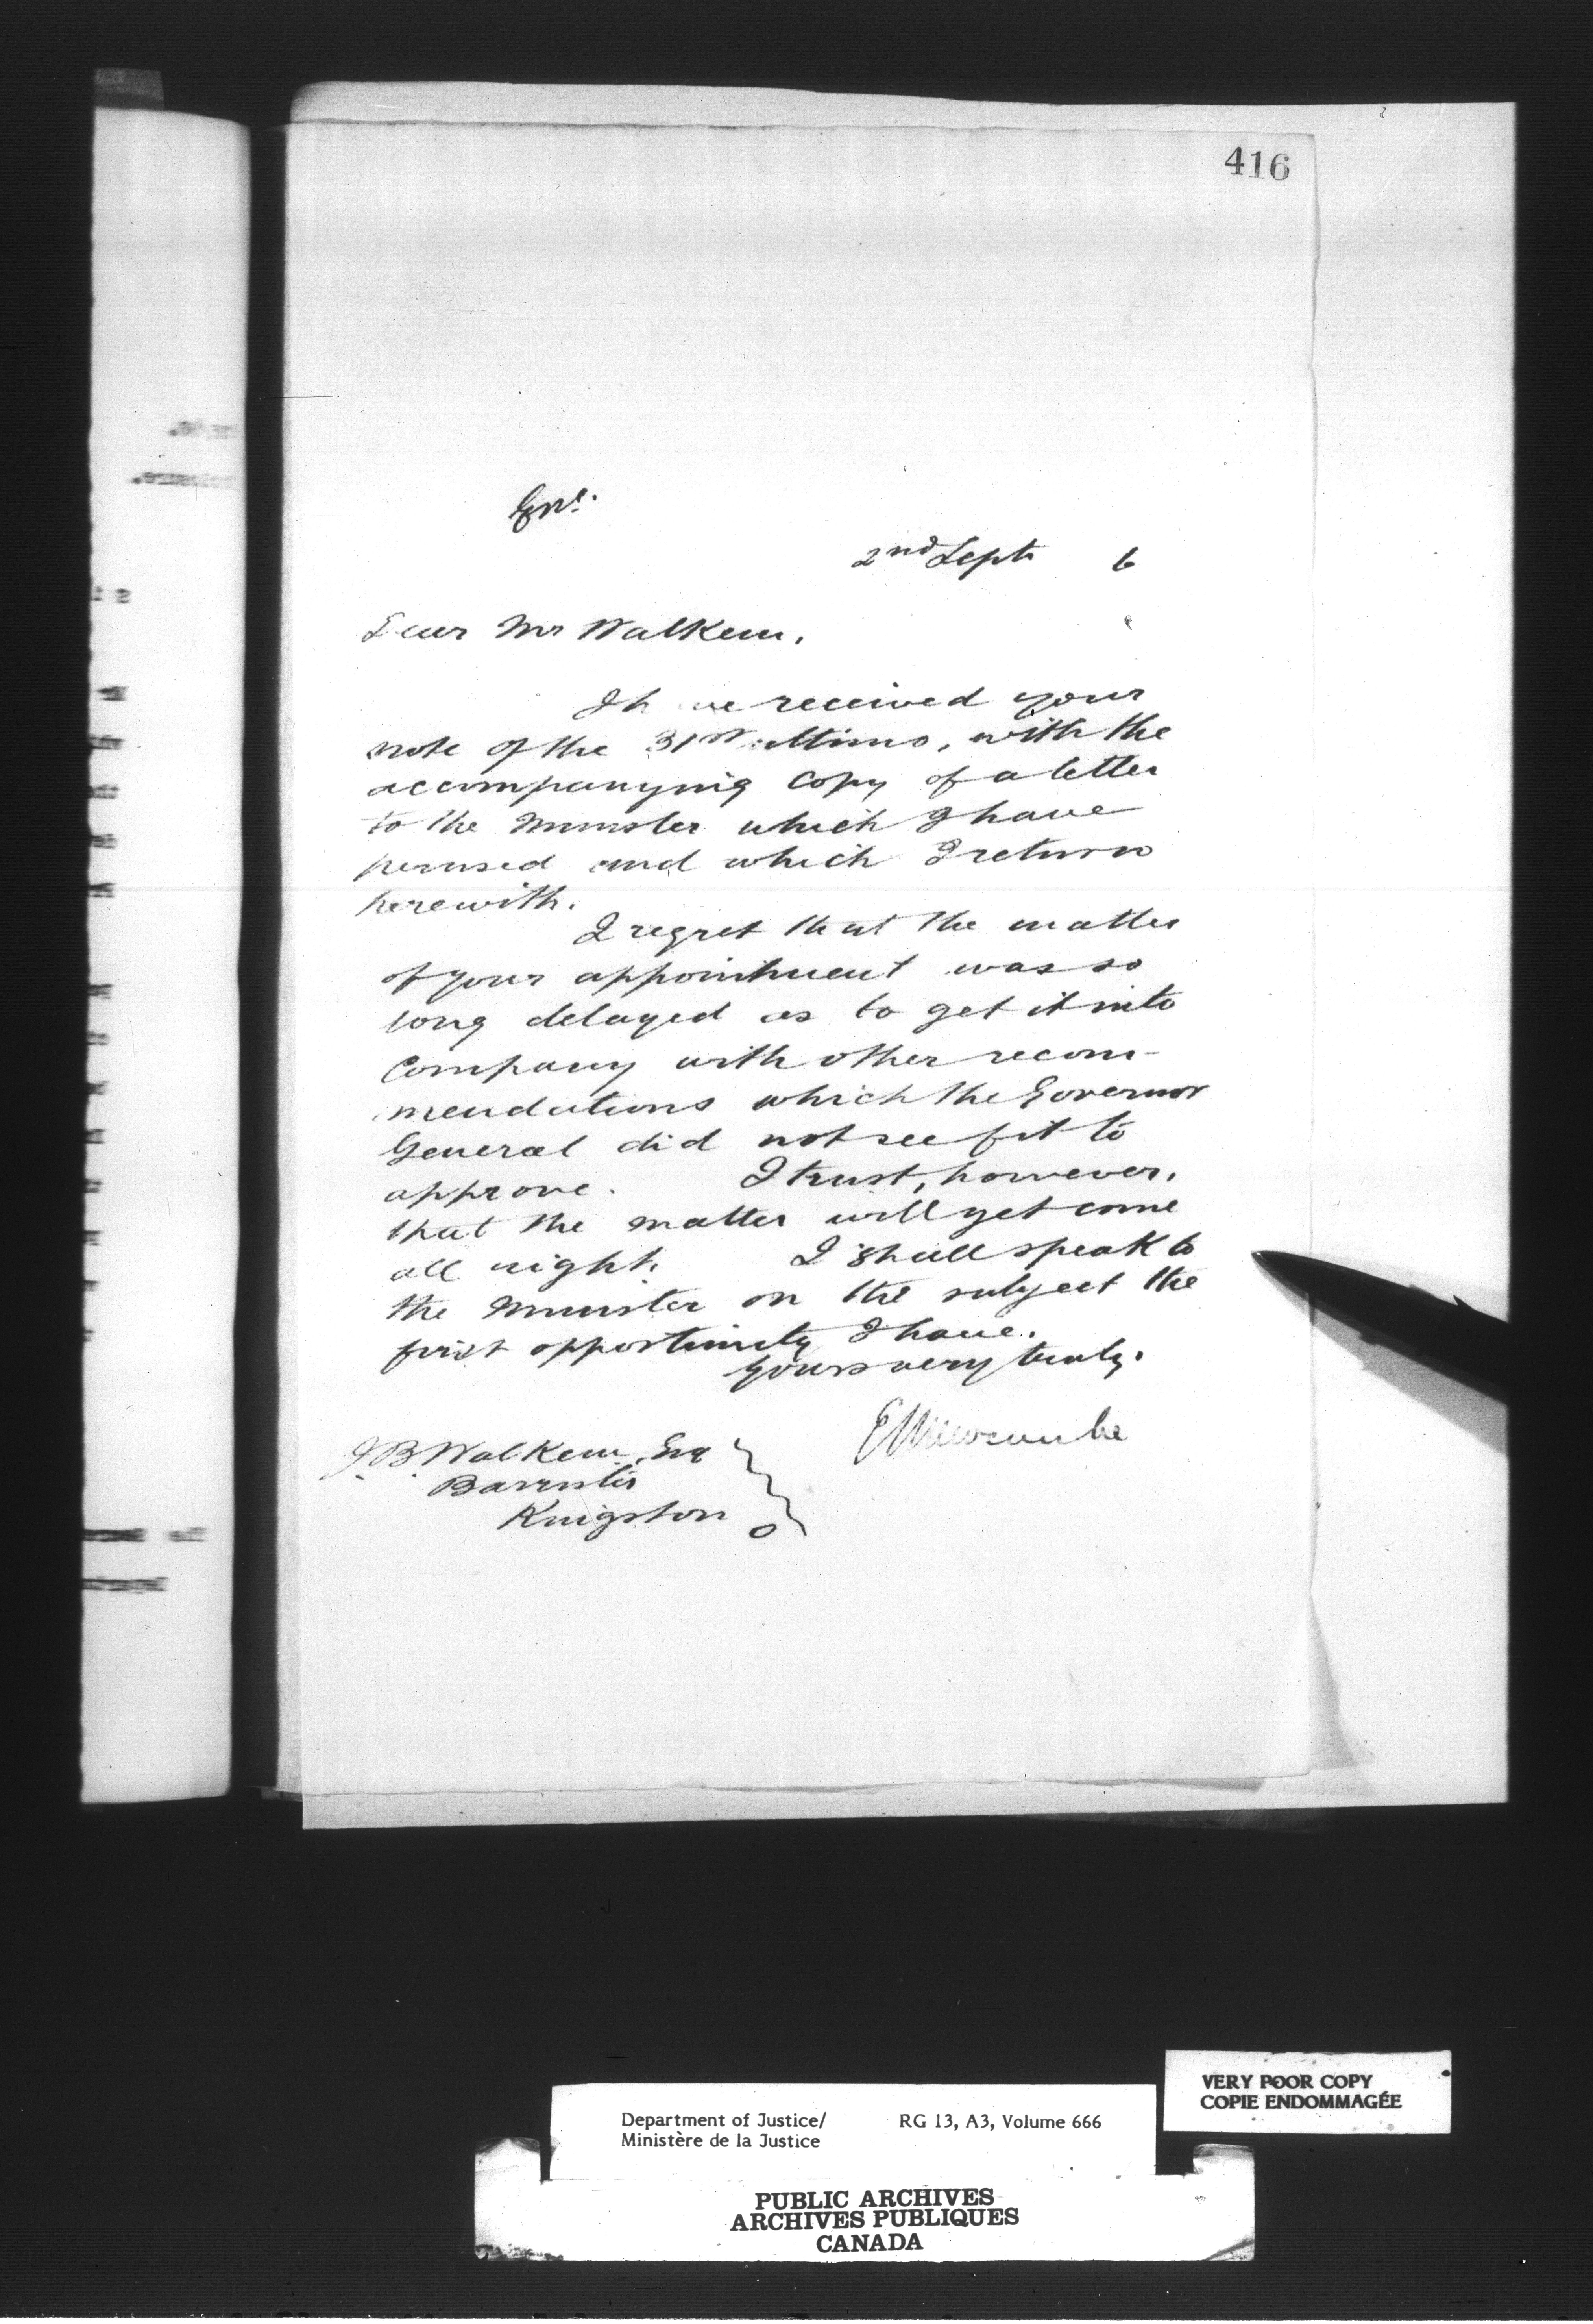 416
Encl.
2nd Sept 6
Dear Mr Walkem,
I have received your
note of the 31st ultimo, with the
accompanying copy of a letter
to the Minister which I have
perused and which I return
herewith.
I regret that the matter
of your appointment was so
long delayed as to get it into
company with other recom-
mendations which the Governor
General did not see fit to
approve. I trust, however,
that the matter will yet come
all right. I shall speak to
the Minister on the subject the
first opportunity I have.
Yours very truly.
E Newcombe
J. B. Walkem, Esq
Barrister
Kingston
VERY POOR COPY
COPIE ENDOMMAGÉE
Department of Justice/ RG 13, A3, Volume 666
Ministère de la Justice
PUBLIC ARCHIVES
ARCHIVES PUBLIQUES
CANADA